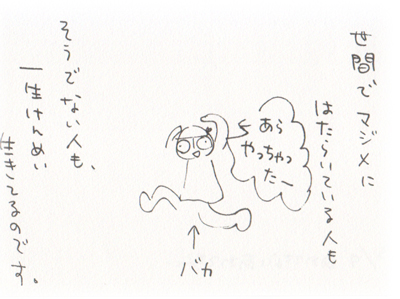 世間でマジメに
はたらいている人も
あら
やっちゃっ
たー
バカ
そうでない人も、
一生けんめい
生きてるのです。